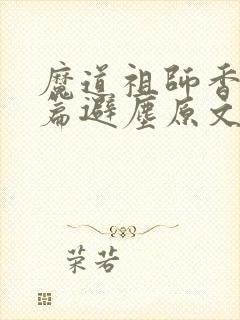 魔道祖師香
篇避塵原文
荣若